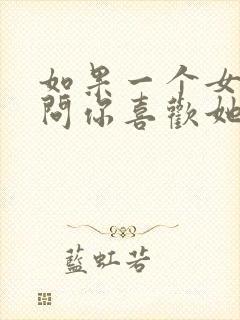 如果一个女
问你喜歡她
藍虹若